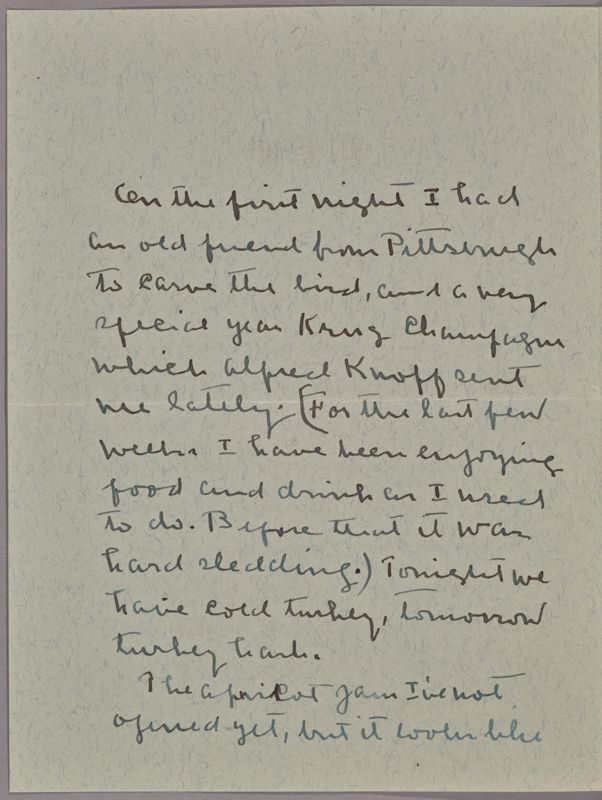 On the first night I had
an old friend from Pittsburgh
to carve the bird, and a very
special year Krug Champagne
which Alfred Knopf sent
me lately. (For the last few
weeks I have been enjoying
food and drink as I used
to do. Before that it was
hard sledding.) Tonight we
have cold turkey, tomorrow
turkey hash.
The apricot jam I've not
opened yet, but it looks like